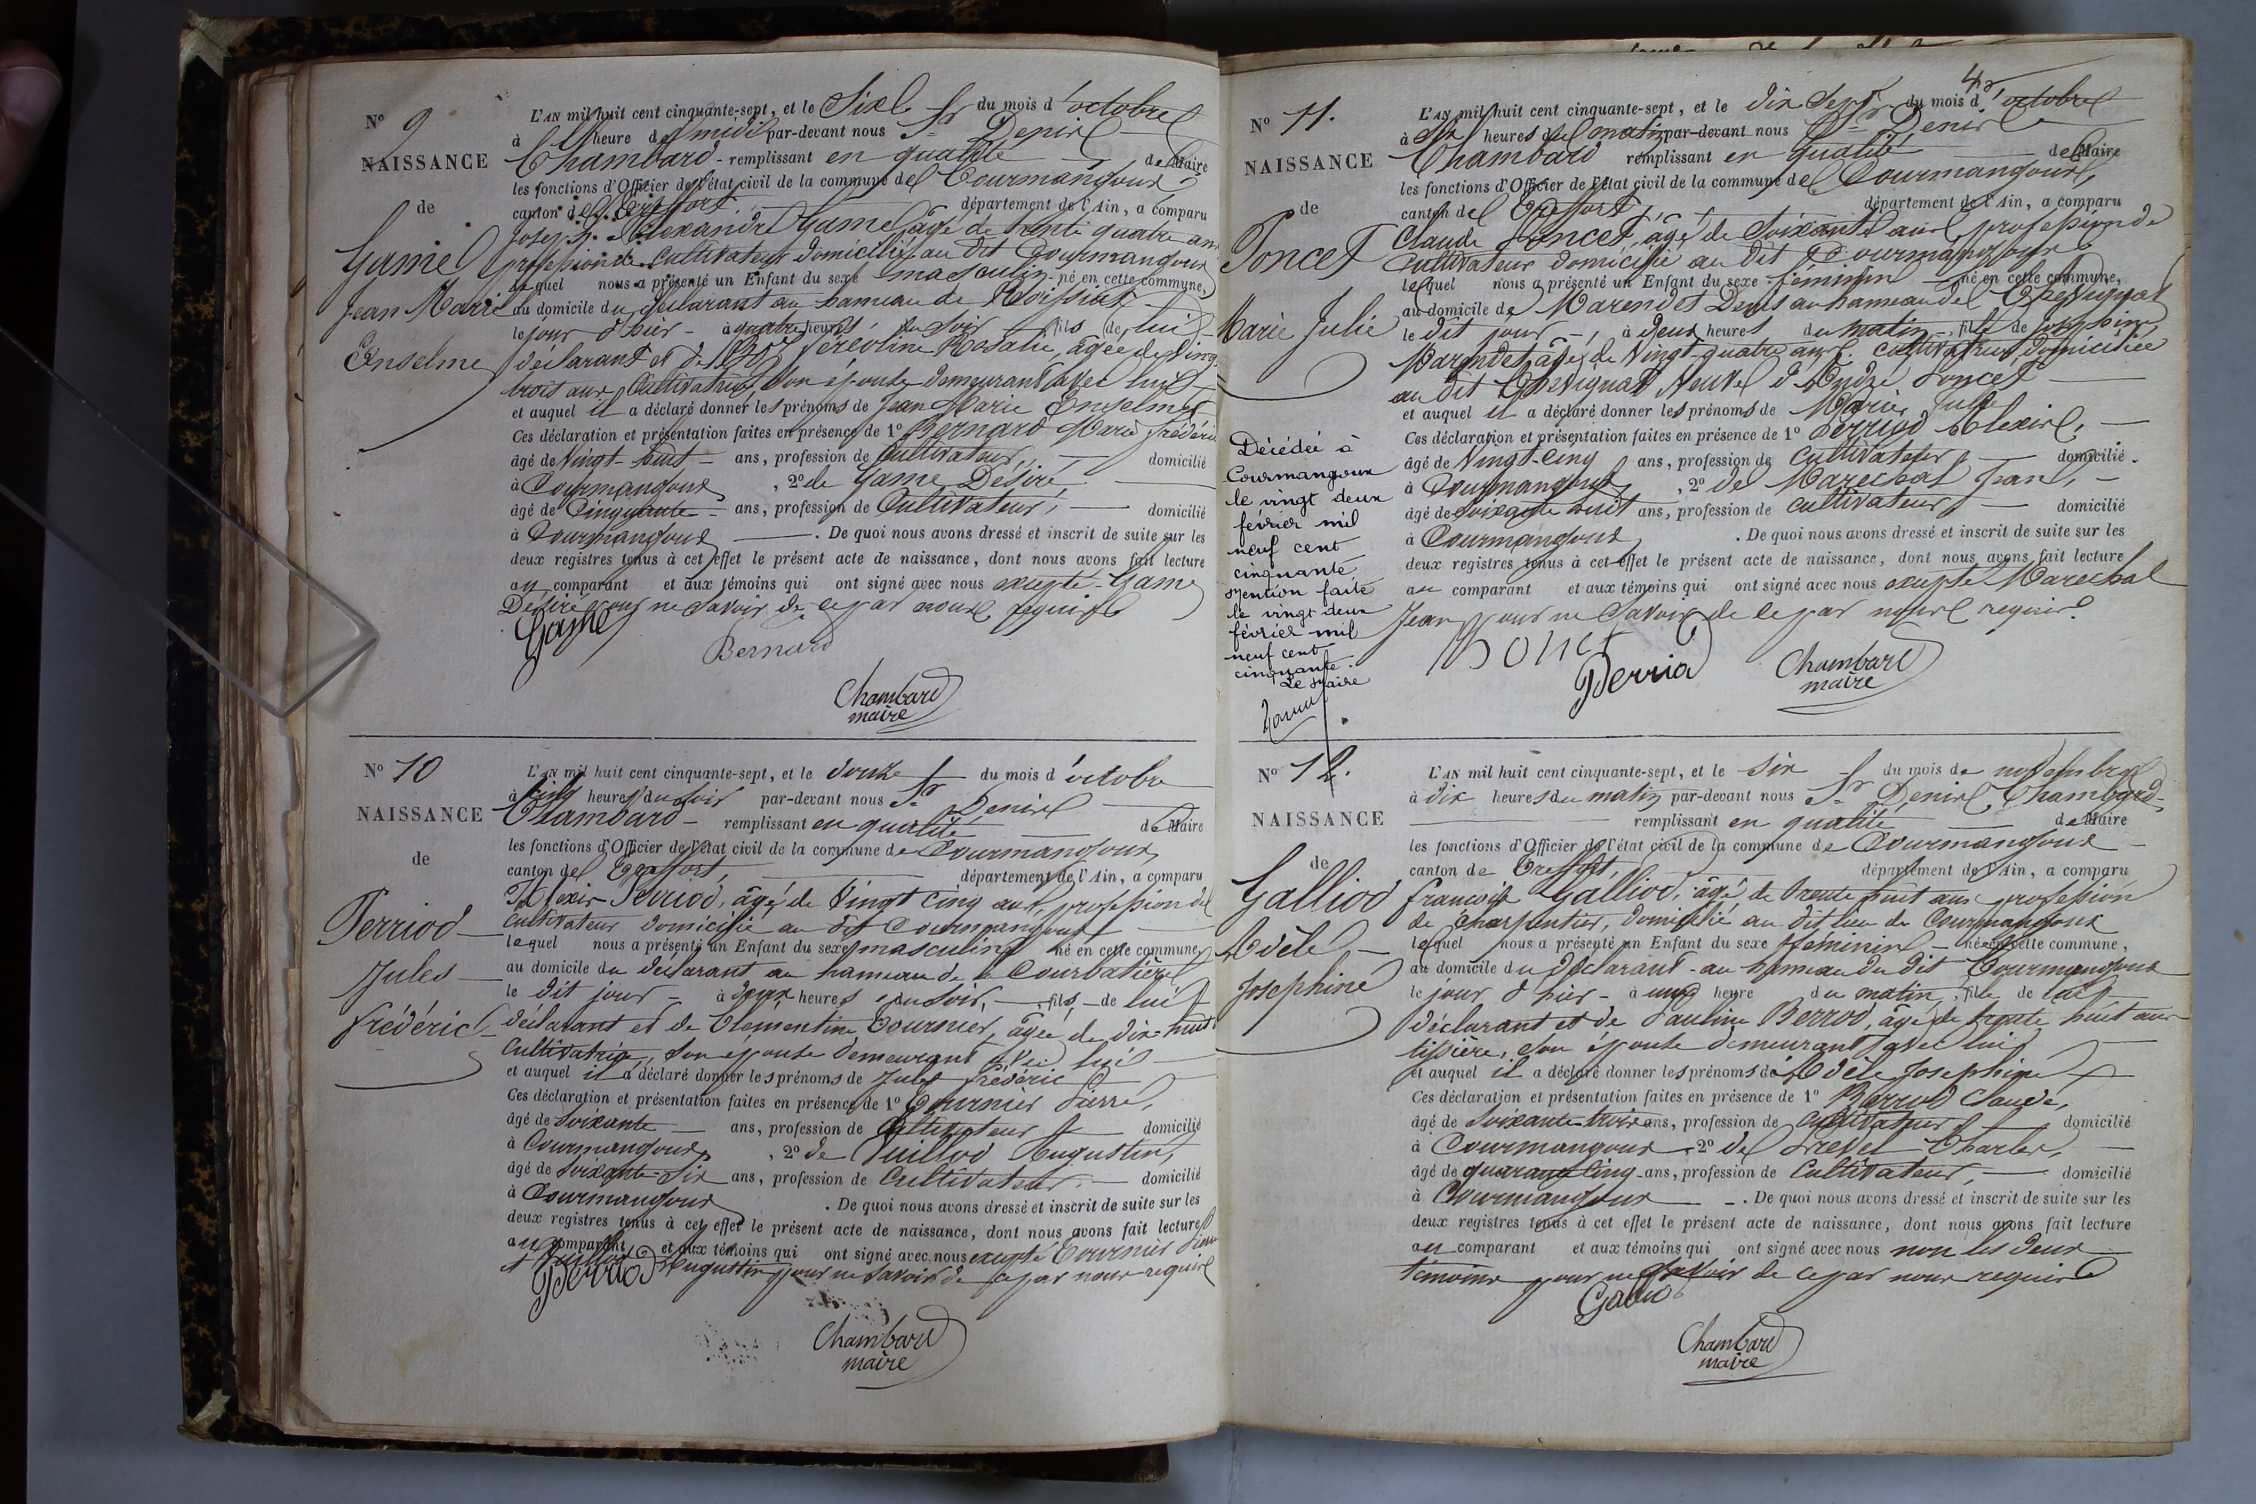 N° 9
NAISSANCE
de
Game
Jean Marie
Enselme
L'AN mil huit cent cinquante-sept, et le Six du mois d'octobre
à heure de midi par-devant nous Sr Denis
Chambard - remplissant en qualité de Maire
les fonctions d'Officier de l'état civil de la commune de Courmangoux
canton de Treffort, département de l'Ain, a comparu
Joseph Alexandre Game, âgé de trente quatre ans
profession de Cultivateur domicilié au dit Courmangoux
lequel nous a présenté un Enfant du sexe masculin - né en cette commune,
au domicile du déclarant au hameau de Roissiat
le jour d'hier - à quatre heures du soir fils de lui
déclarant et de Rosalie, âgée de vingt
trois ans Cultivatrice, son épouse demeurant avec lui
et auquel il a déclaré donner les prénoms de Jean Marie Enselme
Ces déclaration et présentation faites en présence de 1° Bernard Marie frédéric
âgé de Vingt-huit - ans, profession de Cultivateur, domicilié
à Courmangoux, 2° de Game Désiré
âgé de Cinquante - ans, profession de Cultivateur, domicilié
à Courmangoux. De quoi nous avons dressé et inscrit de suite sur les
deux registres tenus à cet effet le présent acte de naissance, dont nous avons fait lecture
au comparant et aux témoins qui ont signé avec nous excepté Game
Désiré pour ne savoir de ce par nous requis
Game
Bernard
Chambard
maire
N° 10
NAISSANCE
de
Perriod
Jules
frédéric
L'AN mil huit cent cinquante-sept, et le douze du mois d'octobre
à cinq heures du soir par-devant nous Sr Denis
Chambard - remplissant en qualité de Maire
les fonctions d'Officier de l'état civil de la commune de Courmangoux
canton de Treffort, département de l'Ain, a comparu
Alexis Perriod, âgé de Vingt cinq ans, profession de
Cultivateur domicilié au dit Courmangoux
lequel nous a présenté un Enfant du sexe masculin né en cette commune,
au domicile du déclarant au hameau de la Courbatière
le dit jour - à deux heures du soir, fils de lui
déclarant et de Clémentine Tournier, âgée de dix huit
Cultivatrice, son épouse demeurant avec lui
et auquel il a déclaré donner les prénoms de Jules frédéric
Ces déclaration et présentation faites en présence de 1° Tournier Pierre,
âgé de Soixante ans, profession de Cultivateur domicilié
à Courmangoux, 2° de Vuillod Augustin,
âgé de Soixante-six ans, profession de Cultivateur, domicilié
à Courmangoux. De quoi nous avons dressé et inscrit de suite sur les
deux registres tenus à cet effet le présent acte de naissance, dont nous avons fait lecture
au comparant et aux témoins qui ont signé avec nous excepté Tournier Pierre
et Vuillod Augustin pour ne savoir de ce par nous requis
Perriod
Chambard
maire
43
N° 11.
NAISSANCE
de
Poncet
Marie Julie
Décédée à
Courmangoux
le vingt deux
février mil
neuf cent
cinquante
Mention faite
le vingt deux
février mil
neuf cent
cinquante.
Le Maire
L'AN mil huit cent cinquante-sept, et le dix Sept du mois d'octobre
à Six heures du matin par-devant nous Sr Denis
Chambard remplissant en qualité de Maire
les fonctions d'Officier de l'état civil de la commune de Courmangoux,
canton de Treffort, département de l'Ain, a comparu
Claude Poncet, âgé de Soixante ans profession de
Cultivateur domicilié au dit Courmangoux
lequel nous a présenté un Enfant du sexe féminin né en cette commune,
au domicile de Marendet Denis au hameau de Chevignat
le dit jour - à deux heures du matin, fille de Josephine
Marendet âgée de Vingt-quatre ans. cultivatrice domiciliée
au dit Chevignat Veuve d'André Poncet
et auquel il a déclaré donner les prénoms de Marie Julie
Ces déclaration et présentation faites en présence de 1° Perriod Alexis,
âgé de Vingt-cinq ans, profession de Cultivateur domicilié
à Courmangoux, 2° de Marechal Jean,
âgé de soixante huit ans, profession de cultivateur domicilié
à Courmangoux. De quoi nous avons dressé et inscrit de suite sur les
deux registres tenus à cet effet le présent acte de naissance, dont nous avons fait lecture
au comparant et aux témoins qui ont signé avec nous excepté Marechal
Jean pour ne savoir de ce par nous requis
Perriod
Chambard
maire
N° 12.
NAISSANCE
de
Galliod
Adèle
Josephine
L'AN mil huit cent cinquante-sept, et le six du mois de novembre
à dix heures du matin par-devant nous Sr Denis Chambard
remplissant en qualité de Maire
les fonctions d'Officier de l'état civil de la commune de Courmangoux
canton de Treffort, département de l'Ain, a comparu
françois Galliod, âgé de trente huit ans profession
de charpentier, domicilié au dit lieu de Courmangoux
lequel nous a présenté un Enfant du sexe féminin - né en cette commune,
au domicile du déclarant - au hameau du dit Courmangoux
le jour d'hier - à une heure du matin, fille de lui
déclarant et de Pauline Berrod, âgée de trente huit ans
tissière, son épouse demeurant avec lui
et auquel il a déclaré donner les prénoms de Adèle Josephine
Ces déclaration et présentation faites en présence de 1° Berrod Claude,
âgé de Soixante-trois ans, profession de Cultivateur domicilié
à Courmangoux, 2° de Charles,
âgé de quarante Cinq - ans, profession de Cultivateur, domicilié
à Courmangoux. De quoi nous avons dressé et inscrit de suite sur les
deux registres tenus à cet effet le présent acte de naissance, dont nous avons fait lecture
au comparant et aux témoins qui ont signé avec nous non les deux
témoins pour ne savoir de ce par nous requis
Chambard
maire